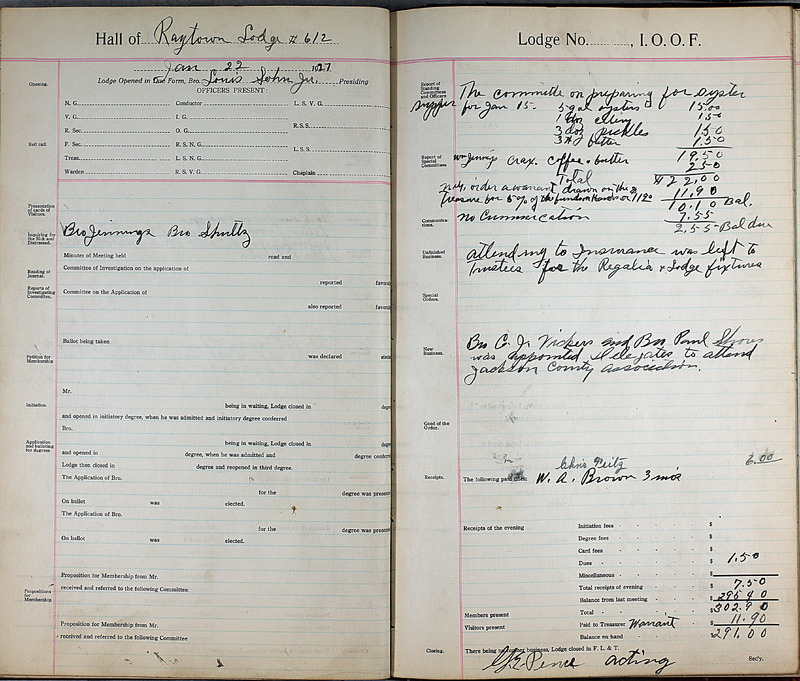 Hall of Raytown Lodge # 612
Jan 22 1927
Lodge Opened in Due Form, Bro. Louis Sohn Jr. Presiding
Opening.
OFFICERS PRESENT:
N. G. Conductor L. S. V. G.
V. G. I. G.
R.S.S.
Roll call
R. Sec. O. G.
F. Sec. R. S. N. G.
L. S. S.
Treas. L. S. N. G.
Warden R. S. V. G. Chaplain
Presentation of cards of Visitors.
Inquiring for the Sick and Distressed.
Bro Jennings Bro Shultz
Minutes of Meeting held read and
Reading of Journal.
Committee of Investigation on the application of
reported favor
Reports of Investigating Committee.
Committee on the Application of
also reported favor
Ballot being taken
Petition for Membership
was declared elec
Mr.
Initiation.
being in waiting, Lodge closed in degr
and opened in initiatory degree, when he was admitted and initiatory degree conferred
Bro.
Application and balloting for degrees
being in waiting, Lodge closed in degr
and opened in degree, when he was admitted and degree confer
Lodge then closed in degree and reopened in third degree.
The Application of Bro.
for the degree was presen
On ballot was elected.
The Application of Bro.
for the degree was presen
On ballot was elected.
Proposition for Membership from Mr.
received and referred to the following Committee
Propositions for Membership
Proposition for Membership from Mr.
received and referred to the following Committee
Lodge No. , I. O. O. F.
Report of Standing Committees and Officers
The committe on preparing for oyster
supper for Jan 15. 5 gal oysters 15.00
1 doz cellery 150
3 doz pickles 150
3 # butter 1.50
19.50
Report of Special Committees
Wm Jennings crax. coffee + butter 250
Total $22.00
order a warrant drawn on the
Treasure for 5% of the funds on hand or 1190 11.90
10.10 Bal.
7.55
Communications.
no Cummication
2.55 Bal due
Unfinished Business.
attending to Insurance was left to
Trustees for the Regalia & Lodge fixtures
Special Orders.
New Business.
Bro C. Jr Vickers and Bro Paul Shores
was appointed delegates to attend
Jackson County association.
Good of the Order.
Chris Peitz 6.00
Receipts.
The following paid dues: W. A. Brown 3 mo's
Receipts of the evening Initiation fees $
Degree fees $
Card fees $
Dues $ 1.50
Miscellaneous $
Total receipts of evening $ 7.50
Balance from last meeting $ 295 40
Total $ 302.90
Members present
Visitors present
Paid to Treasurer Warrant $ 11.90
Balance on hand $ 291.00
Closing.
There being no further business, Lodge closed in F. L. & T.
G.E Pence acting Sec'y.